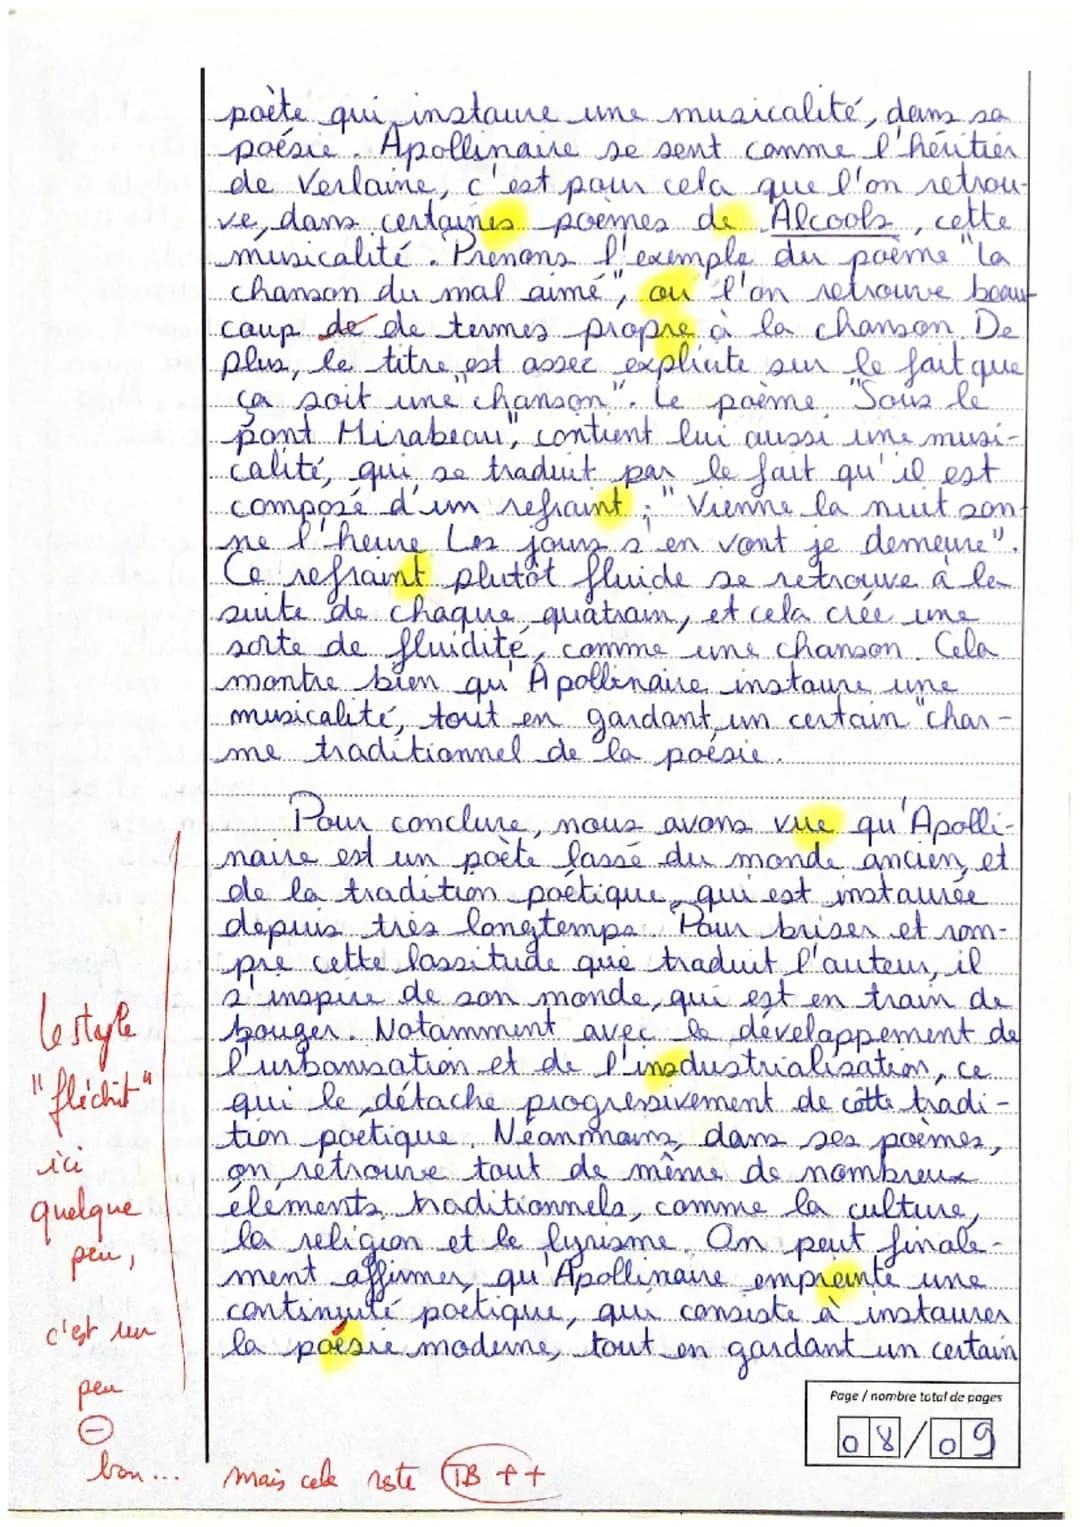 poète qui instaure une musicalité, dans sa
poésie. Apollinaire se sent comme l'héritier
de Verlaine, c'est pour cela que l'on retrou-
ve, dans certaines poèmes de Alcools, cette
musicalité. Prenons l'exemple du poème "la
chanson du mal aimé", ou l'on retrouve beau-
coup de de termes propre à la chanson. De
plus, le titre est assez explicite sur le fait que
ça soit une "chanson". Le poème, "Sous le
pont Mirabeau", contient lui aussi une musi-
calité, qui se traduit par le fait qu'il est
composé d'un refraint ; "Vienne la nuit son-
ne l'heure Les jours s'en vont je demeure".
Ce refraint plutôt fluide se retrouve à la
suite de chaque quatrain, et cela crée une
sorte de fluidité, comme une chanson. Cela
montre bien qu'Apollinaire instaure une
musicalité, tout en gardant un certain char-
me traditionnel de la poésie.
Pour conclure, nous avons vue qu'Apolli-
naire est un poète lassé du monde ancien, et
de la tradition poétique, qui est instaurée
depuis très longtemps. Pour briser et rom-
pre cette lassitude que traduit l'auteur, il
s'inspire de son monde, qui est en train de
bouger. Notamment avec le développement de
l'urbanisation et de l'insdustrialisation, ce
qui le détache progressivement de cette tradi-
tion poétique. Néanmoins, dans ses poèmes,
on retrouve tout de même de nombreux
éléments traditionnels, comme la culture,
la religion et le lyrisme. On peut finale-
ment affirmer qu'Apollinaire empreinte une
continuité poétique, qui consiste à instaurer
la poésie moderne, tout en gardant un certain
Le style
"fléchit"
ici
quelque
peu,
c'est un
peu
⊖
bon...
mais cela reste TB ++
Page / nombre total de pages
08/09